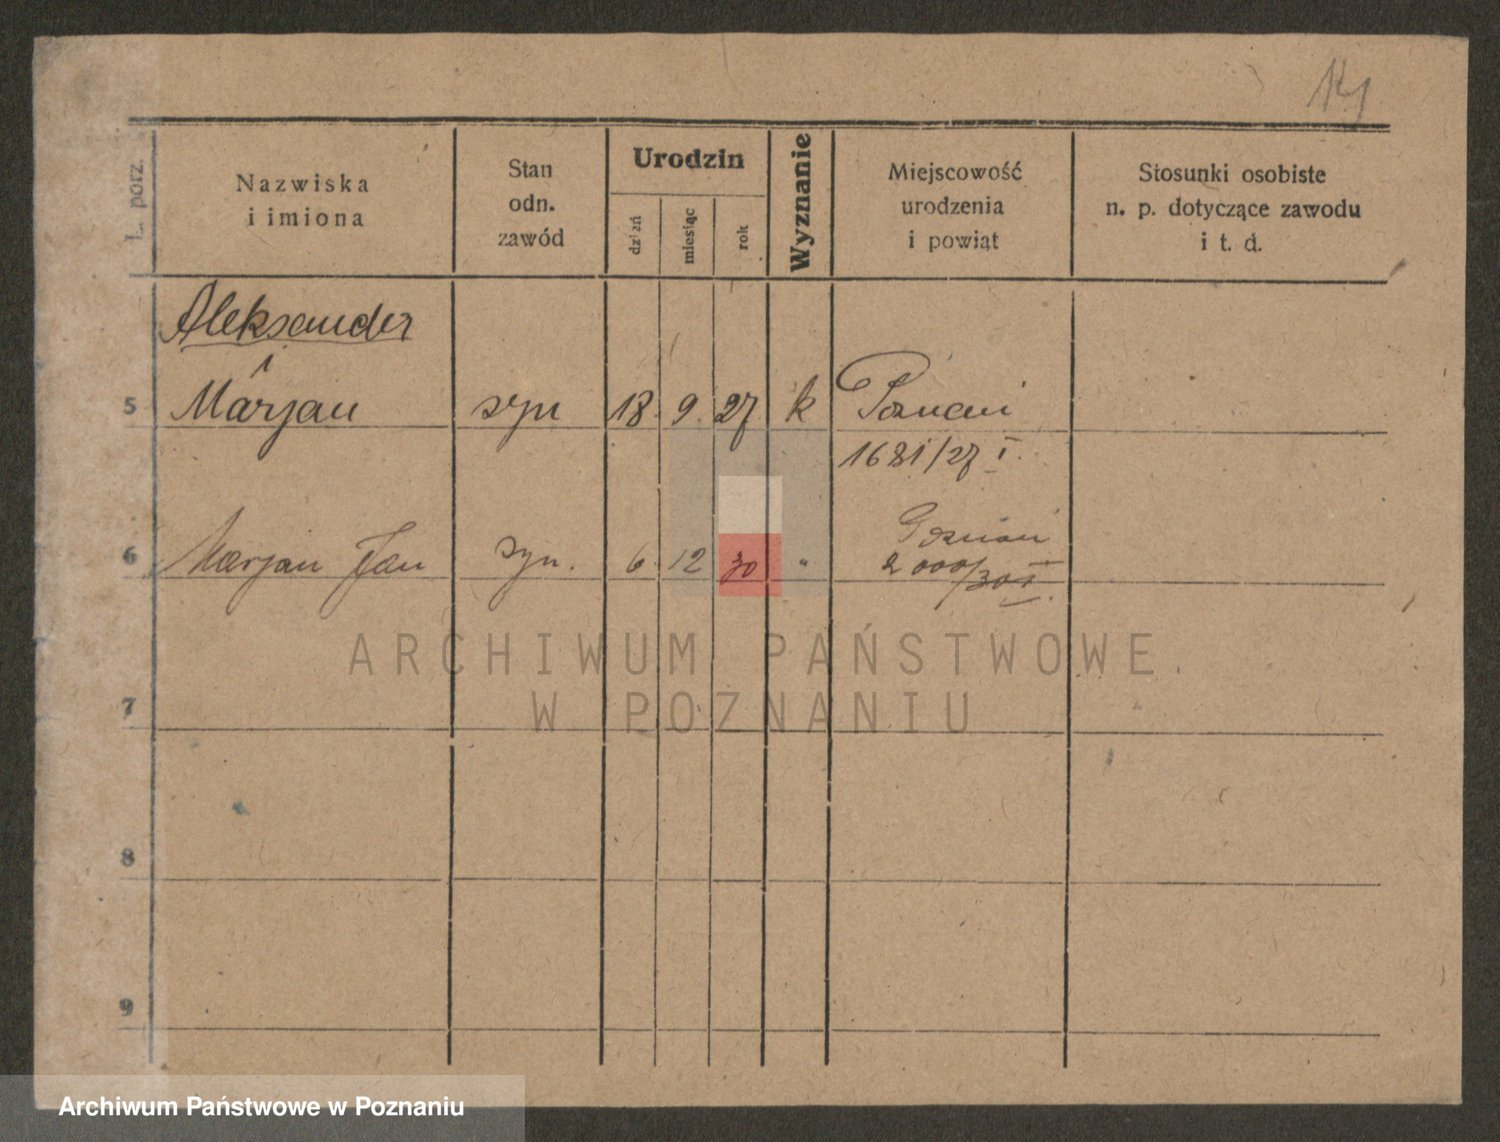 14
L. porz.
Nazwiska
i imiona
Stan
odn.
zawód
Urodzin
dzień
miesiąc
rok
Wyznanie
Miejscowość
urodzenia
i powiat
Stosunki osobiste
n. p. dotyczące zawodu
i t. d.
Aleksander
5 Marjan syn 18 9 27 k Poznań
1681/27 I.
6 Marjan Jan syn. 6 12 30 " Poznań
2000/30 I.
ARCHIWUM PAŃSTWOWE
W POZNANIU
7
8
9
Archiwum Państwowe w Poznaniu